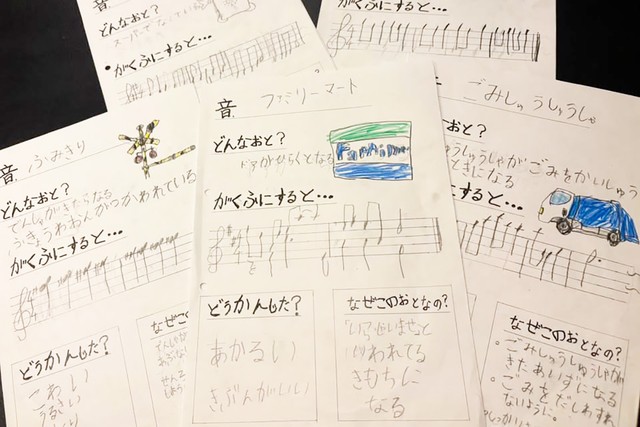 音
どんなおと?
がくふにすると…
音 ふみきり
どんなおと?
でんしゃがきたらなる
ふきょうわおんがつかわれている
がくふにすると…
どうかんじた?
こわい
うるさい
音 ファミリーマート
どんなおと?
ドアがひらくとなる
FamilyMart
がくふにすると…
どうかんじた?
あかるい
きぶんがいい
なぜこのおとなの?
「いらっしゃいませ」と
いわれてる
きもちに
なる
ごみしゅうしゅうしゃ
しゅうしゃがごみをかいしゅう
ときになる
すると…
なぜこのおとなの?
・ごみしゅうしゅうしゃが
きたあいずになる
・ごみをだしわすれ
ないように。